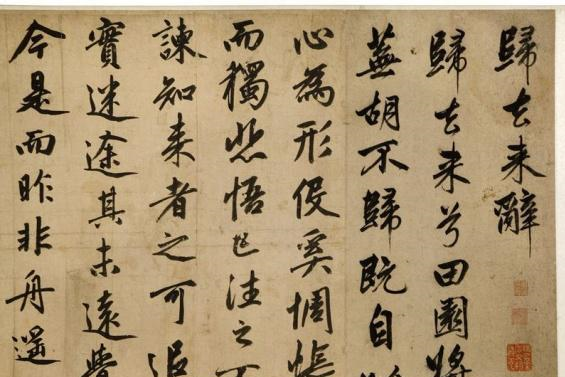 歸去来辭
歸去来兮田園將
蕪胡不歸既自
心為形役奚惆悵
而獨悲悟已往之不
諫知来者之可追
實迷途其未遠覺
今是而昨非舟遥